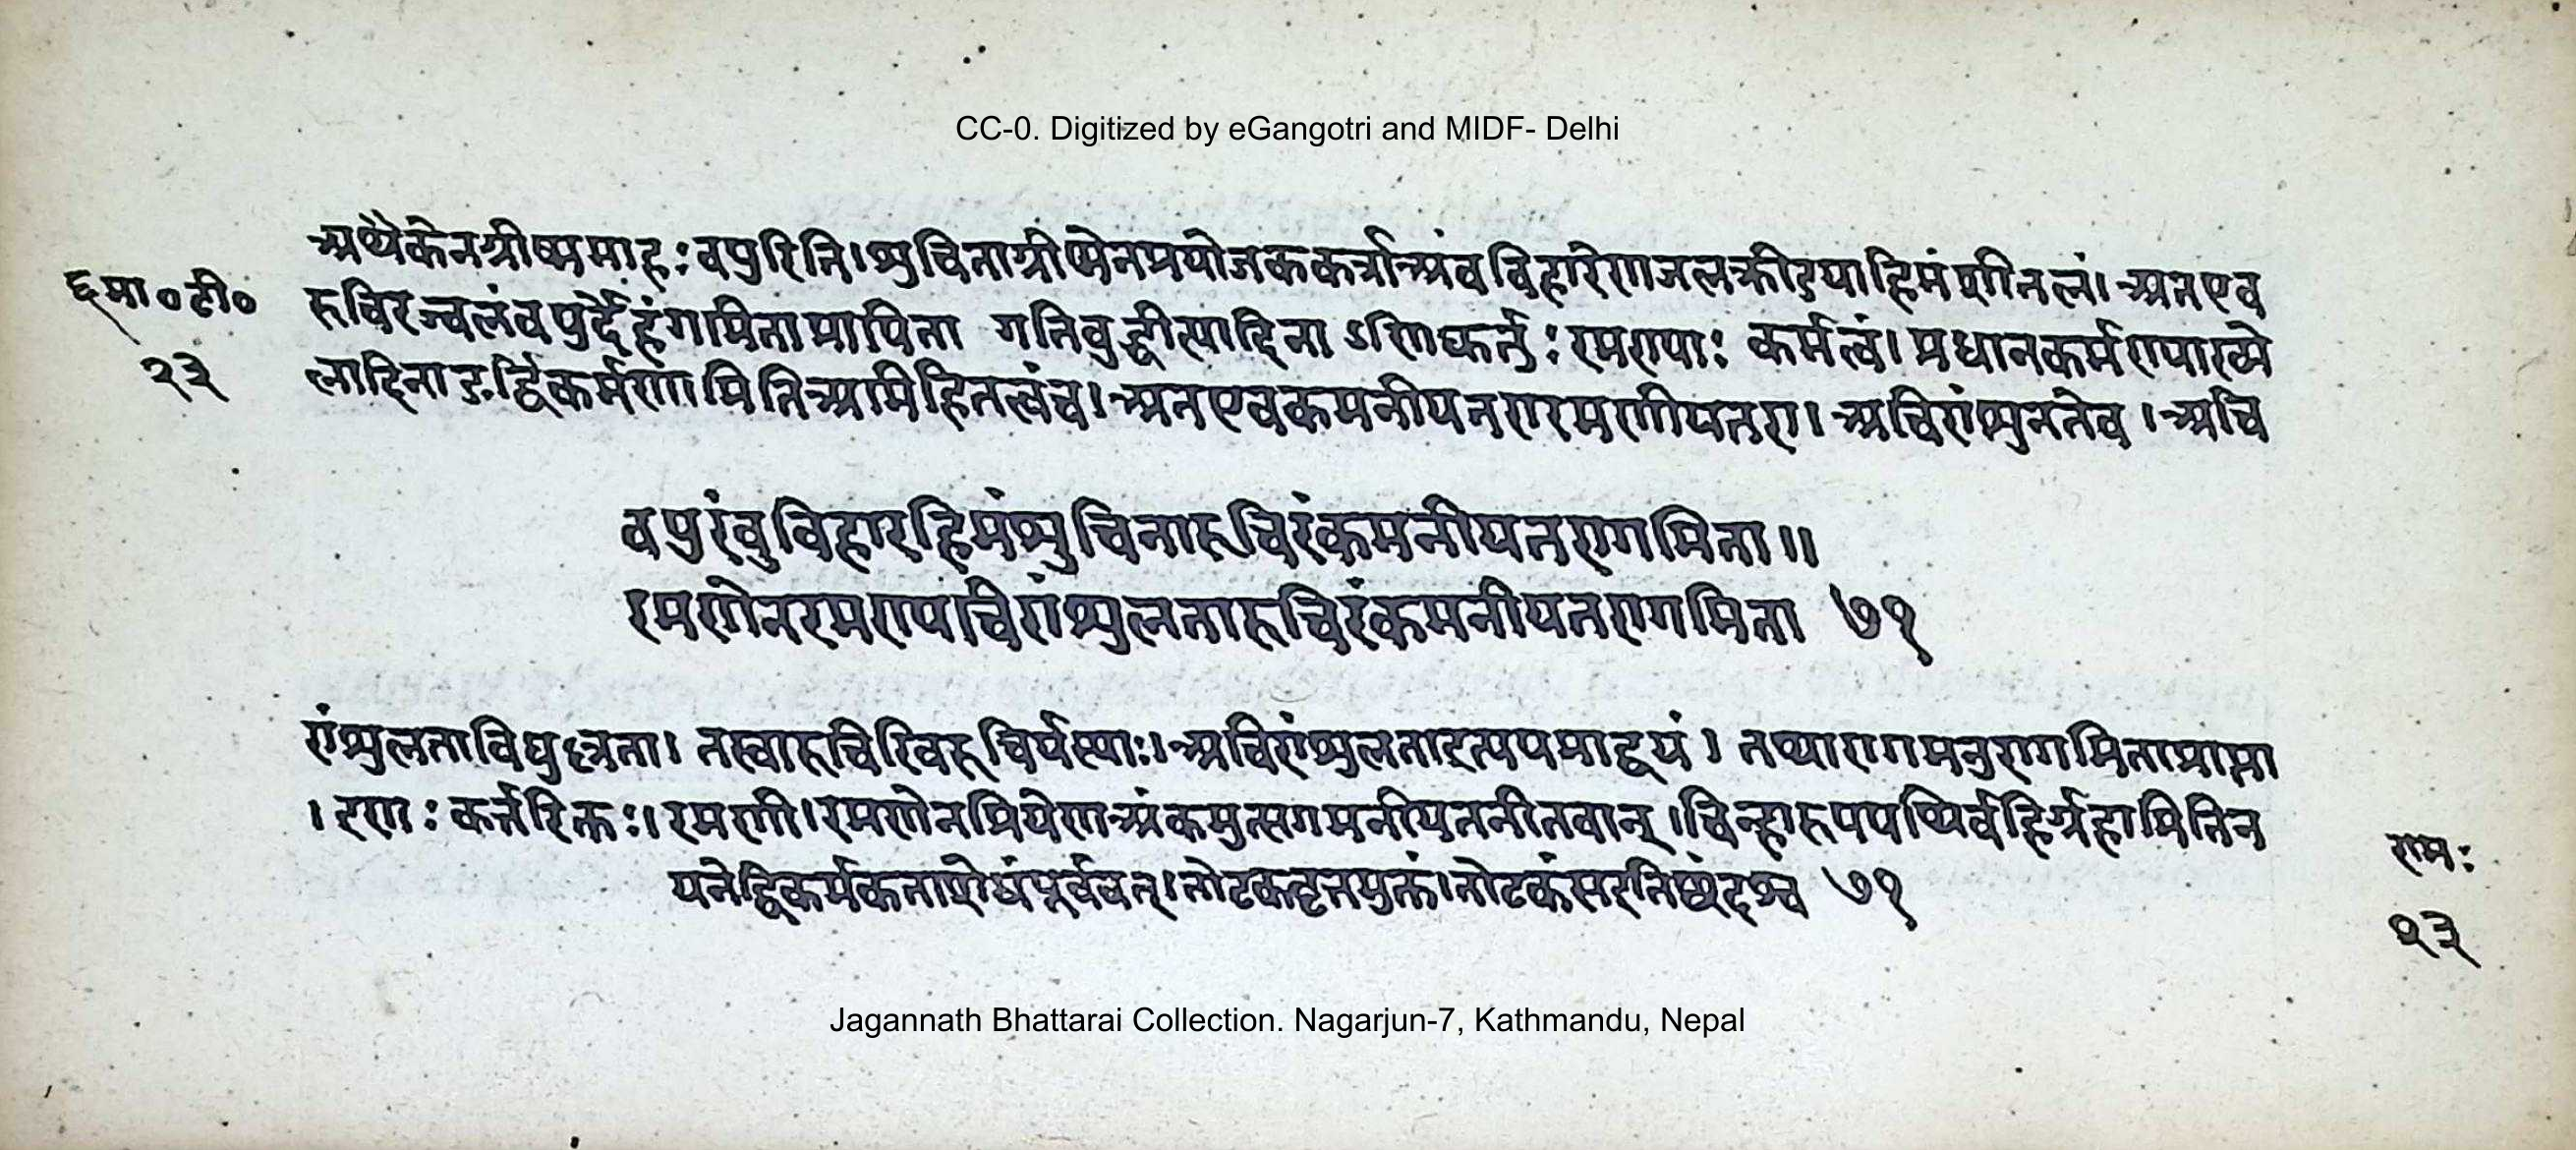 CC-0. Digitized by eGangotri and MIDF- Delhi
अथैकेनग्रीष्ममाह:वपुरिति।शुचिनाग्रीष्मेनप्रयोजककर्त्राअंबविहारेणजलक्रीडयाहिमंशीतलं।अतएव
छमा०टी० रुचिरज्वलंवपुर्देहंगामिताप्रापिता गतिबुद्धीत्यादिनाऽणिकर्तु:रमण्या: कर्मत्वं।प्रधानकर्मण्याख्ये
२३ लादिनाङर्द्विकर्मणामितिअभिहितत्वंच।अतएवकमनीयतरारमणीयतरा।अचिरांशुलतेव।अचि
वपुरंबुविहारहिमंशुचिनारुचिरंकमनीयतरागमिता॥
रमणेनरमण्यचिरांशुलतारुचिरंकमनीयतरागमिता ७१
रांशुलताविद्युल्लता। तस्यारुचिरिवरुचिर्यस्याः।अचिरांशुलता तथारागमनुरागमिताप्राप्ता
। कर्त्तरिक्तः।रमणी।रमणेनप्रियेणअंकमुत्सगमनीयतनीतवान्।
यतेद्विकर्मकताशेषंपूर्ववत्।तोटकवृत्तमुक्तं। ७१
रामः
२३
Jagannath Bhattarai Collection. Nagarjun-7, Kathmandu, Nepal